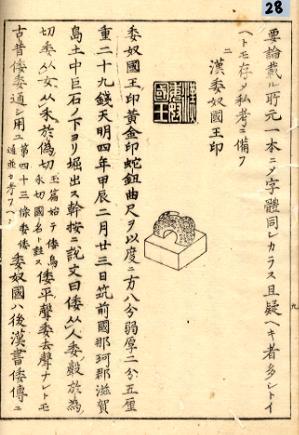 28
要論戴ル所元一本ニノ字體同シカラス且疑ヘキ者多シトイ
ヘトモ存メ私考ニ備フ
ニ
漢委奴國王印
漢委奴國王
委奴國王印黄金印蛇鈕曲尺ヲ以度ニ方八分弱厚二分五厘
重二十九錢天明四年甲辰二月廿三日筑前國那珂郡滋賀
島土中巨石ノ下ヨリ堀出ス幹按ニ説文曰倭从人委聲於為
切委从女从禾於偽切玉篇始テ倭烏禾切國名ト註ス倭平聲委去聲ナレトモ
古昔倭委通シ用ユ第四十三條委倭通並ヒ考フヘシ委奴國ハ後漢書倭傳ニ
九